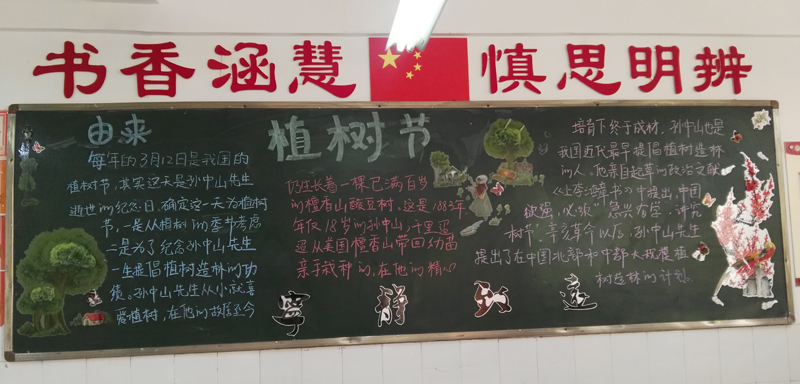 书香涵慧 慎思明辨
植树节
由来
每年的3月12日是我国的
植树节,其实这天是孙中山先生
逝世的纪念日,确定这一天为植树
节,一是从植树的季节考虑
二是为了纪念孙中山先生
一生提倡植树造林的功
绩。孙中山先生从小就喜
爱植树,在他的故居至今
仍生长着一棵已满百岁
的檀香山酸豆树,这是1883年
年仅18岁的孙中山,千里迢
迢从美国檀香山带回幼苗
亲手栽种的,在他的精心
培育下终于成材。孙中山也是
我国近代最早提倡植树造林
的人,他亲自起草的政治文献
《上李鸿章书》中提出,中国
欲强,必须"急兴农学,讲究
树艺"。辛亥革命以后,孙中山先生
提出了在中国北部和中部大规模植
树造林的计划。
宁静致远